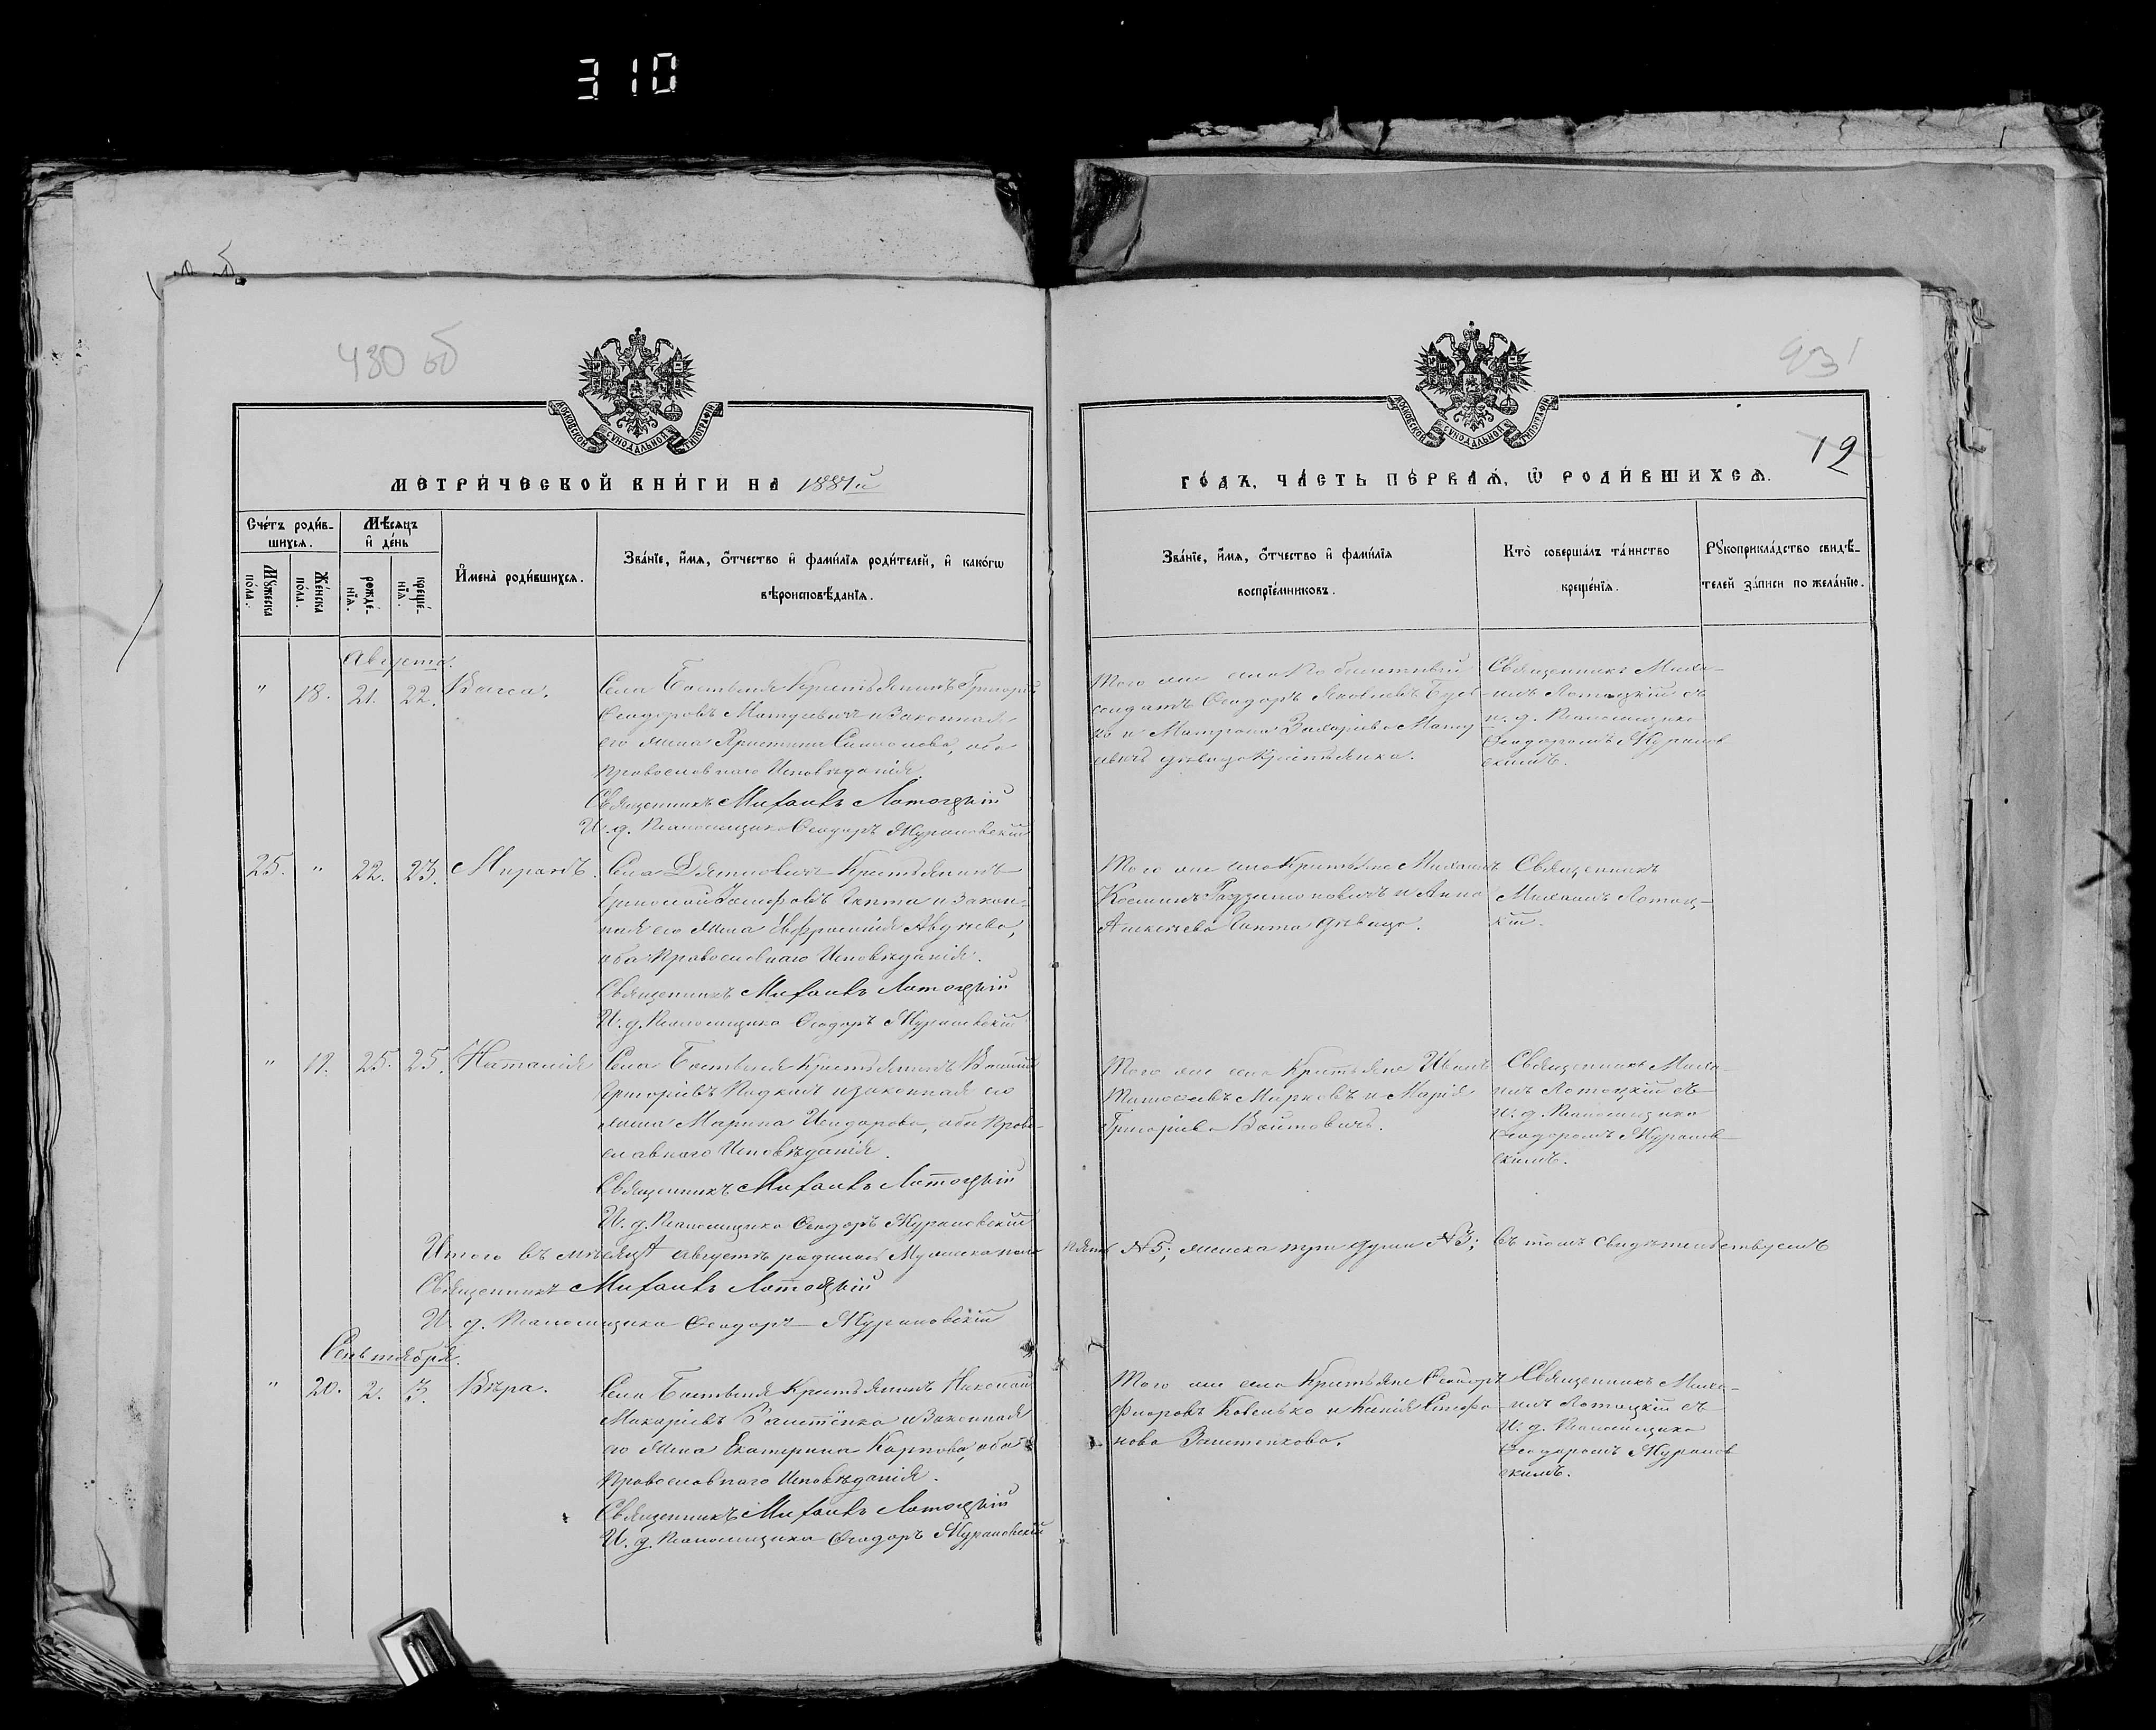 310
430 об
931
12
МОСКОВСКОЙ СѴНОДАЛЬНОЙ ТИПОГРАФІИ
МОСКОВСКОЙ СѴНОДАЛЬНОЙ ТИПОГРАФІИ
МЕТРИ́ЧЕСКОЙ КНИ́ГИ НА 1881й
ГО́ДЪ, ЧА́СТЬ ПЕ́РВАЯ, Ѡ РОДИ́ВШИХСЯ.
Сче́тъ роди́вшихся.
Мѣ́сяцъ и де́нь
Мꙋ́жеска по́ла.
Же́нска по́ла.
рожде́нїя.
креще́нїя.
И҆мена̀ роди́вшихся.
Зва́нїе, и҆́мя, ѻ҆́тчество и҆ фами́лїя роди́телей, и҆ како́гѡ
вѣроисповѣ́данїя.
Зва́нїе, и҆́мя, ѻ҆́тчество и҆ фами́лїя
воспрїе́мниковъ.
Кто̀ соверша́лъ та́инство
креще́нїя.
Рꙋкоприкла́дство свидѣ́-
телей за́писи по жела́нїю.
Августа.
" 18. 21. 22. Васса. Села Крестьянинъ Григорій
Ѳеодоровъ Матусевичъ и законная
его жена Христина оба
Православнаго Исповѣданія.
Священникъ Михаилъ Лотоцкій
И. д. Псаломщика Ѳеодоръ Журановскій
Того же села
солдатъ Ѳеодоръ Яковлевъ
ко и Матрона Захаріева Мату
севичъ дѣвица Крестьянка.
Священникъ Миха-
илъ Лотоцкій съ
и. д. Псаломщика
Ѳеодоромъ Журанов
скимъ.
25. " 22. 23. Миронъ. Села Крестьянинъ
и закон-
ная его жена Евфросинія
оба Православнаго Исповѣданія.
Священникъ Михаилъ Лотоцкій
И. д. Псаломщика Ѳеодоръ Журановскій
Того же села Крестьяне Михаилъ
Косьминъ и Анна
Алексѣева дѣвица.
Священникъ
Михаилъ Лотоц-
кій.
" 19. 25. 25. Наталія Села Крестьянинъ
Григоріевъ и законная его
жена Марина Исидорова, оба Право-
славнаго Исповѣданія.
Священникъ Михаилъ Лотоцкій
И. д. Псаломщика Ѳеодоръ Журановскій
Того же села Крестьяне Иванъ
Марковъ и Марія
Григоріева Войтовичъ.
Священникъ Миха-
илъ Лотоцкій съ
и. д. Псаломщика
Ѳеодоромъ Журанов-
скимъ.
Итого въ мѣсяцѣ Августѣ родилось Мужеска пола пять №5; женска три души №3; въ томъ свидѣтельствуемъ
Священникъ Михаилъ Лотоцкій
И. д. Псаломщика Ѳеодоръ Журановскій
Сентября.
" 20. 2. 3. Вѣра. Села Крестьянинъ Николай
Макаріевъ и законная
его жена Екатерина Карпова, оба
Православнаго Исповѣданія.
Священникъ Михаилъ Лотоцкій
И. д. Псаломщика Ѳеодоръ Журановскій
Того же села Крестьяне Ѳеодоръ
и Стефа-
нова
Священникъ Миха-
илъ Лотоцкій съ
И. д. Псаломщика
Ѳеодоромъ Журанов
скимъ.